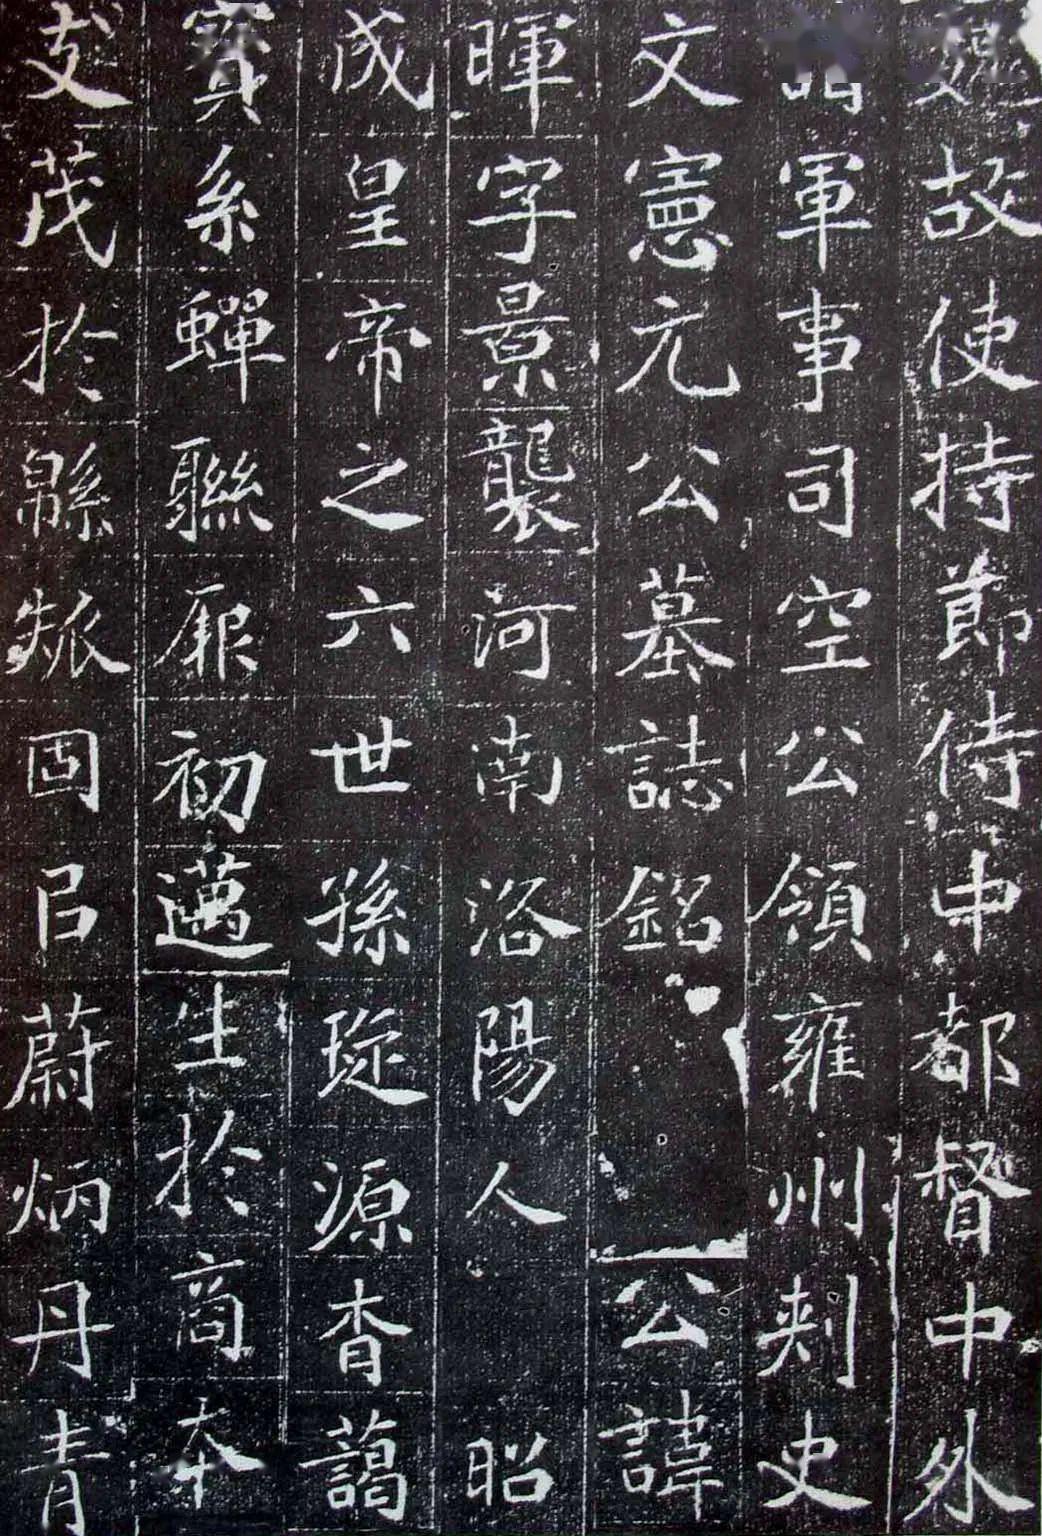 魏故使持節侍中都督中外
諸軍事司空公領雍州刺史
文憲元公墓誌銘　公諱
暉字景襲河南洛陽人　昭
成皇帝之六世孫琁源杳藹
寶系蟬聯厥初邁生於商本
支茂於緜瓞固㠯蔚炳丹青